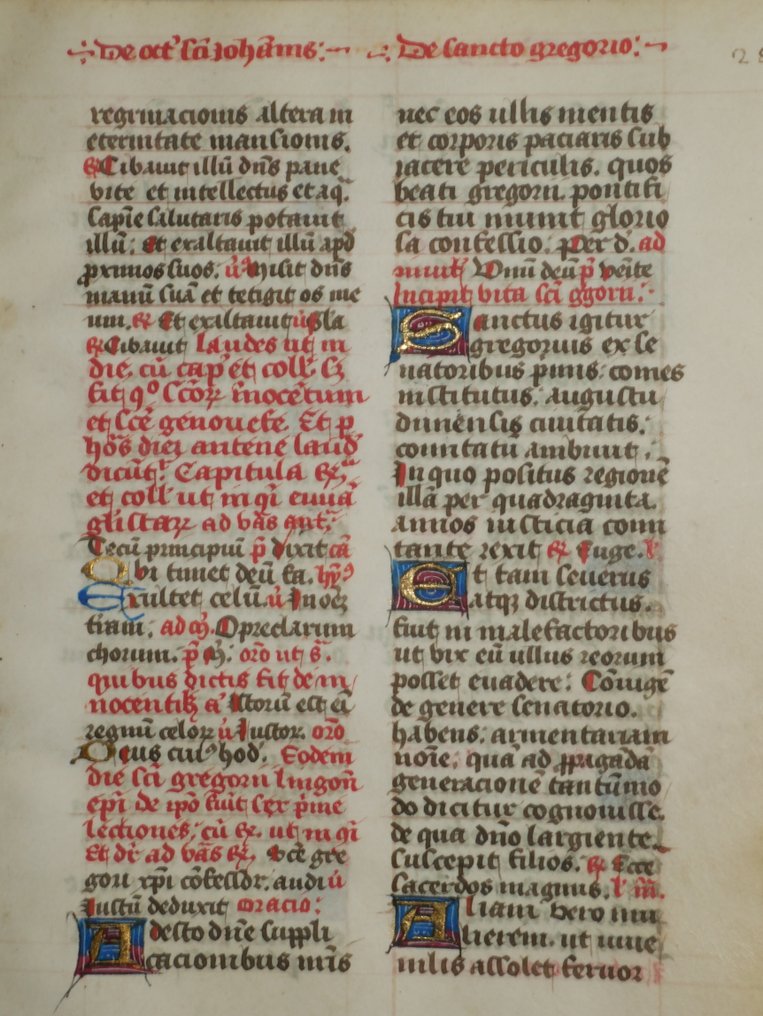 De oct' sci Johanis:
regrinacionis altera in
eternitate mansionis.
R Cibavit illū dns pane
vite et intellectus et aq̄
sapie salutaris potavit
illū: Et exaltavit illū apd
proximos suos. v Misit dns
manū suā et tetigit os me
um. R Et exaltavit v Gla
R Cibavit Laudes ut in
die cū cap' et coll'
fit scorz inocentum
et sce genovefe. Et p
hos dies antene laud'
dicūt. Capitula
et coll' ut in evva
glistarz ad vas ant.
Tecū principiū p dixit
Ubi timet deū hy
Exultet celū. v In oez
tram. ad O preclarum
chorum. p oro ut s.
quibus dictis fit de in
nocentib a Istorū est ei
regnū celorz v Justor. oro
Deus cui' hod'. Eodem
die sci gregorii lingon
epi de ipo fiūt sex pme
lectiones, cū R. ut in
Et dr ad vas R. O gre
gori xpi cōfessor. audi v
Justū deduxit Oracio:
Adesto dne suppli
cacionibus nris
De sancto gregorio:
nec eos ullis mentis
et corporis paciaris sub
jacere periculis. quos
beati gregorii pontifi
cis tui munit glorio
sa confessio. Per d. ad
Venite
Incipit vita sci ggorii:
Sanctus igitur
gregorius ex se
natoribus pmis: comes
institutus. augustu
dunensis civitatis:
comitatū ambivit:
In quo positus regionē
illā per quadraginta
annos iusticia comi
tante rexit R Euge. l'
Et tam severus
atqz districtus.
fuit in malefactoribus
ut vix eū ullus reorum
posset evadere: Coniugē
de genere senatorio.
habens. armentariam
noīe, quā ad ppagadā
generacionē tantūmo
do dicitur cognovisse.
de qua dno largiente
suscepit filios. R Ecce
sacerdos magnus. l' iii.
Aliam vero mu
lierem. ut iuve
nilis assolet fervor